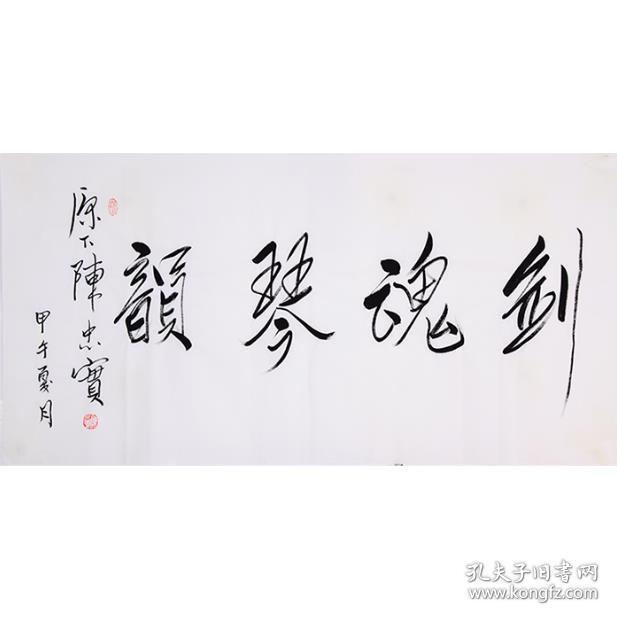 剑魂琴韻
原下陳忠實
甲午夏月
孔夫子旧书网
www.kongfz.com